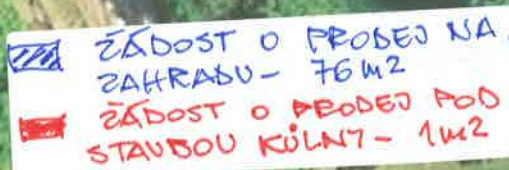 ŽÁDOST O PRODEJ NA
ZAHRADU - 76 m2
ŽÁDOST O PRODEJ POD
STAVBOU KŮLNY - 1m2